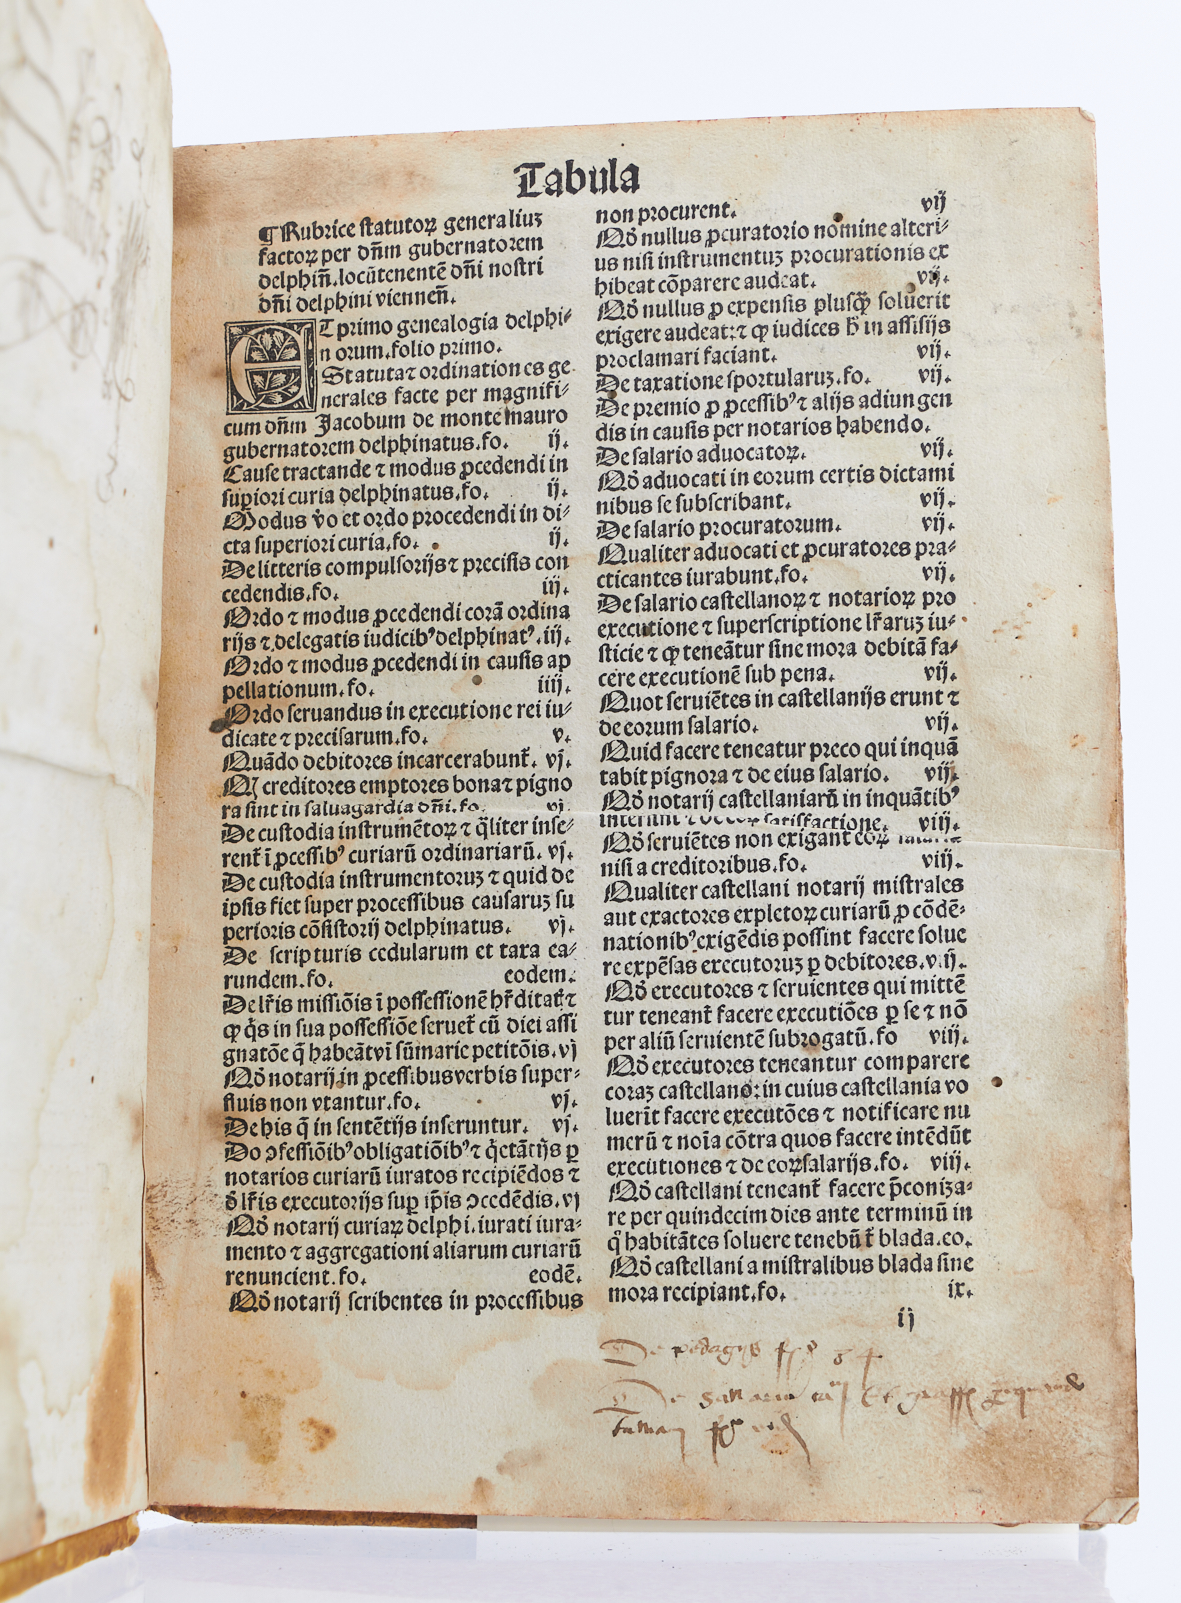 Tabula
¶ Rubrice statutoꝝ generaliuꝫ
factoꝝ per dn̄m gubernatorem
delphin̄.locūtenentē dn̄i nostri
dn̄i delphini viennen̄.
ET primo genealogia delphi⸗
n orum.folio primo.
Statuta ⁊ ordinationes ge
nerales facte per magnifi⸗
cum dn̄m Jacobum de montemauro
gubernatorem delphinatus.fo. ij.
Cause tractande ⁊ modus ꝓcedendi in
suꝑiori curia delphinatus.fo. ij.
Modus v̊o et ordo procedendi in di⸗
cta superiori curia.fo. ij.
De litteris compulsorijs ⁊ precisis con
cedendis.fo. iij.
Ordo ⁊ modus ꝓcedendi corā ordina
rijs ⁊ delegatis iudicibꝰ delphinatꝰ. iij.
Ordo ⁊ modus ꝓcedendi in causis ap
pellationum.fo. iiij.
Ordo seruandus in executione rei iu⸗
dicate ⁊ precisarum.fo. v.
Quādo debitores incarcerabunt̄. vj.
creditores emptores bona ⁊ pigno
ra sint in saluagardia dn̄i.fo. vj.
De custodia instrumētoꝝ ⁊ q̄liter inse⸗
rent̄ ī ꝓcessibꝰ curiarū ordinariarū. vj.
De custodia instrumentoruꝫ ⁊ quid de
ipsis fiet super processibus causaruꝫ su
perioris cōsistorij delphinatus. vj.
De scripturis cedularum et taxa ea⸗
rundem.fo. eodem.
De lr̄is missiōis ī possessionē hr̄ditat̄ ⁊
ꝙ q̄s in sua possessiōe seruet̄ cū diei assi
gnatōe q̄ habeāt vī sūmarie petitōis.vj
Qd̄ notarij in ꝓcessibus verbis super⸗
fluis non vtantur.fo. vj.
De his q̄ in sentētijs inseruntur. vj.
Do ↄfessiōibꝰ obligatiōibꝰ ⁊ q̄tātijs ꝑ
notarios curiarū iuratos recipiēdos ⁊
d̄ lr̄is executorijs suꝑ ip̄is ↄcedēdis.vj
Qd̄ notarij curiaꝝ delphi.iurati iura⸗
mento ⁊ aggregationi aliarum curiarū
renuncient.fo. eodē.
Qd̄ notarij scribentes in processibus
non procurent. vij
Qd̄ nullus ꝓcuratorio nomine alteri⸗
us nisi instrumentuꝫ procurationis ex
hibeat cōparere audeat. vij.
Qd̄ nullus ꝓ expensis plusꝙ̄ soluerit
exigere audeat:⁊ ꝙ iudices h̄ in assisijs
proclamari faciant. vij.
De taxatione sportularuꝫ.fo. vij.
De premio ꝓ ꝓcessibꝰ ⁊ alijs adiun gen
dis in causis per notarios habendo.
De salario aduocatoꝝ. vij.
Qd̄ aduocati in eorum certis dictami
nibus se subscribant. vij.
De salario procuratorum. vij.
Qualiter aduocati et ꝓcuratores pra⸗
cticantes iurabunt.fo. vij.
De salario castellanoꝝ ⁊ notarioꝝ pro
executione ⁊ superscriptione lr̄aruꝫ iu⸗
sticie ⁊ ꝙ teneātur sine mora debitā fa⸗
cere executionē sub pena. vij.
Quot seruiētes in castellanijs erunt ⁊
de eorum salario. vij.
Quid facere teneatur preco qui inquā
tabit pignora ⁊ de eius salario. vij.
Qd̄ notarij castellaniarū in inquātibꝰ
satisfactione. viij.
Qd̄ seruiētes non exigant eoꝝ
nisi a creditoribus.fo. viij.
Qualiter castellani notarij mistrales
aut exactores expletoꝝ curiarū ꝓ cōdē⸗
nationibꝰ exigēdis possint facere solue
re expēsas executoruꝫ ꝑ debitores.v.ij.
Qd̄ executores ⁊ seruientes qui mittē
tur teneant̄ facere executiōes ꝑ se ⁊ nō
per aliū seruientē subrogatū.fo viij.
Qd̄ executores teneantur comparere
coraꝫ castellano:in cuius castellania vo
luerīt facere executōes ⁊ notificare nu
merū ⁊ noīa cōtra quos facere intēdūt
executiones ⁊ de eoꝝ salarijs.fo. viij.
Qd̄ castellani teneant̄ facere p̄coniza⸗
re per quindecim dies ante terminū in
q̊ habitātes soluere tenebūt̄ blada.eo.
Qd̄ castellani a mistralibus blada sine
mora recipiant.fo. ix.
ij
De pedagijs
De